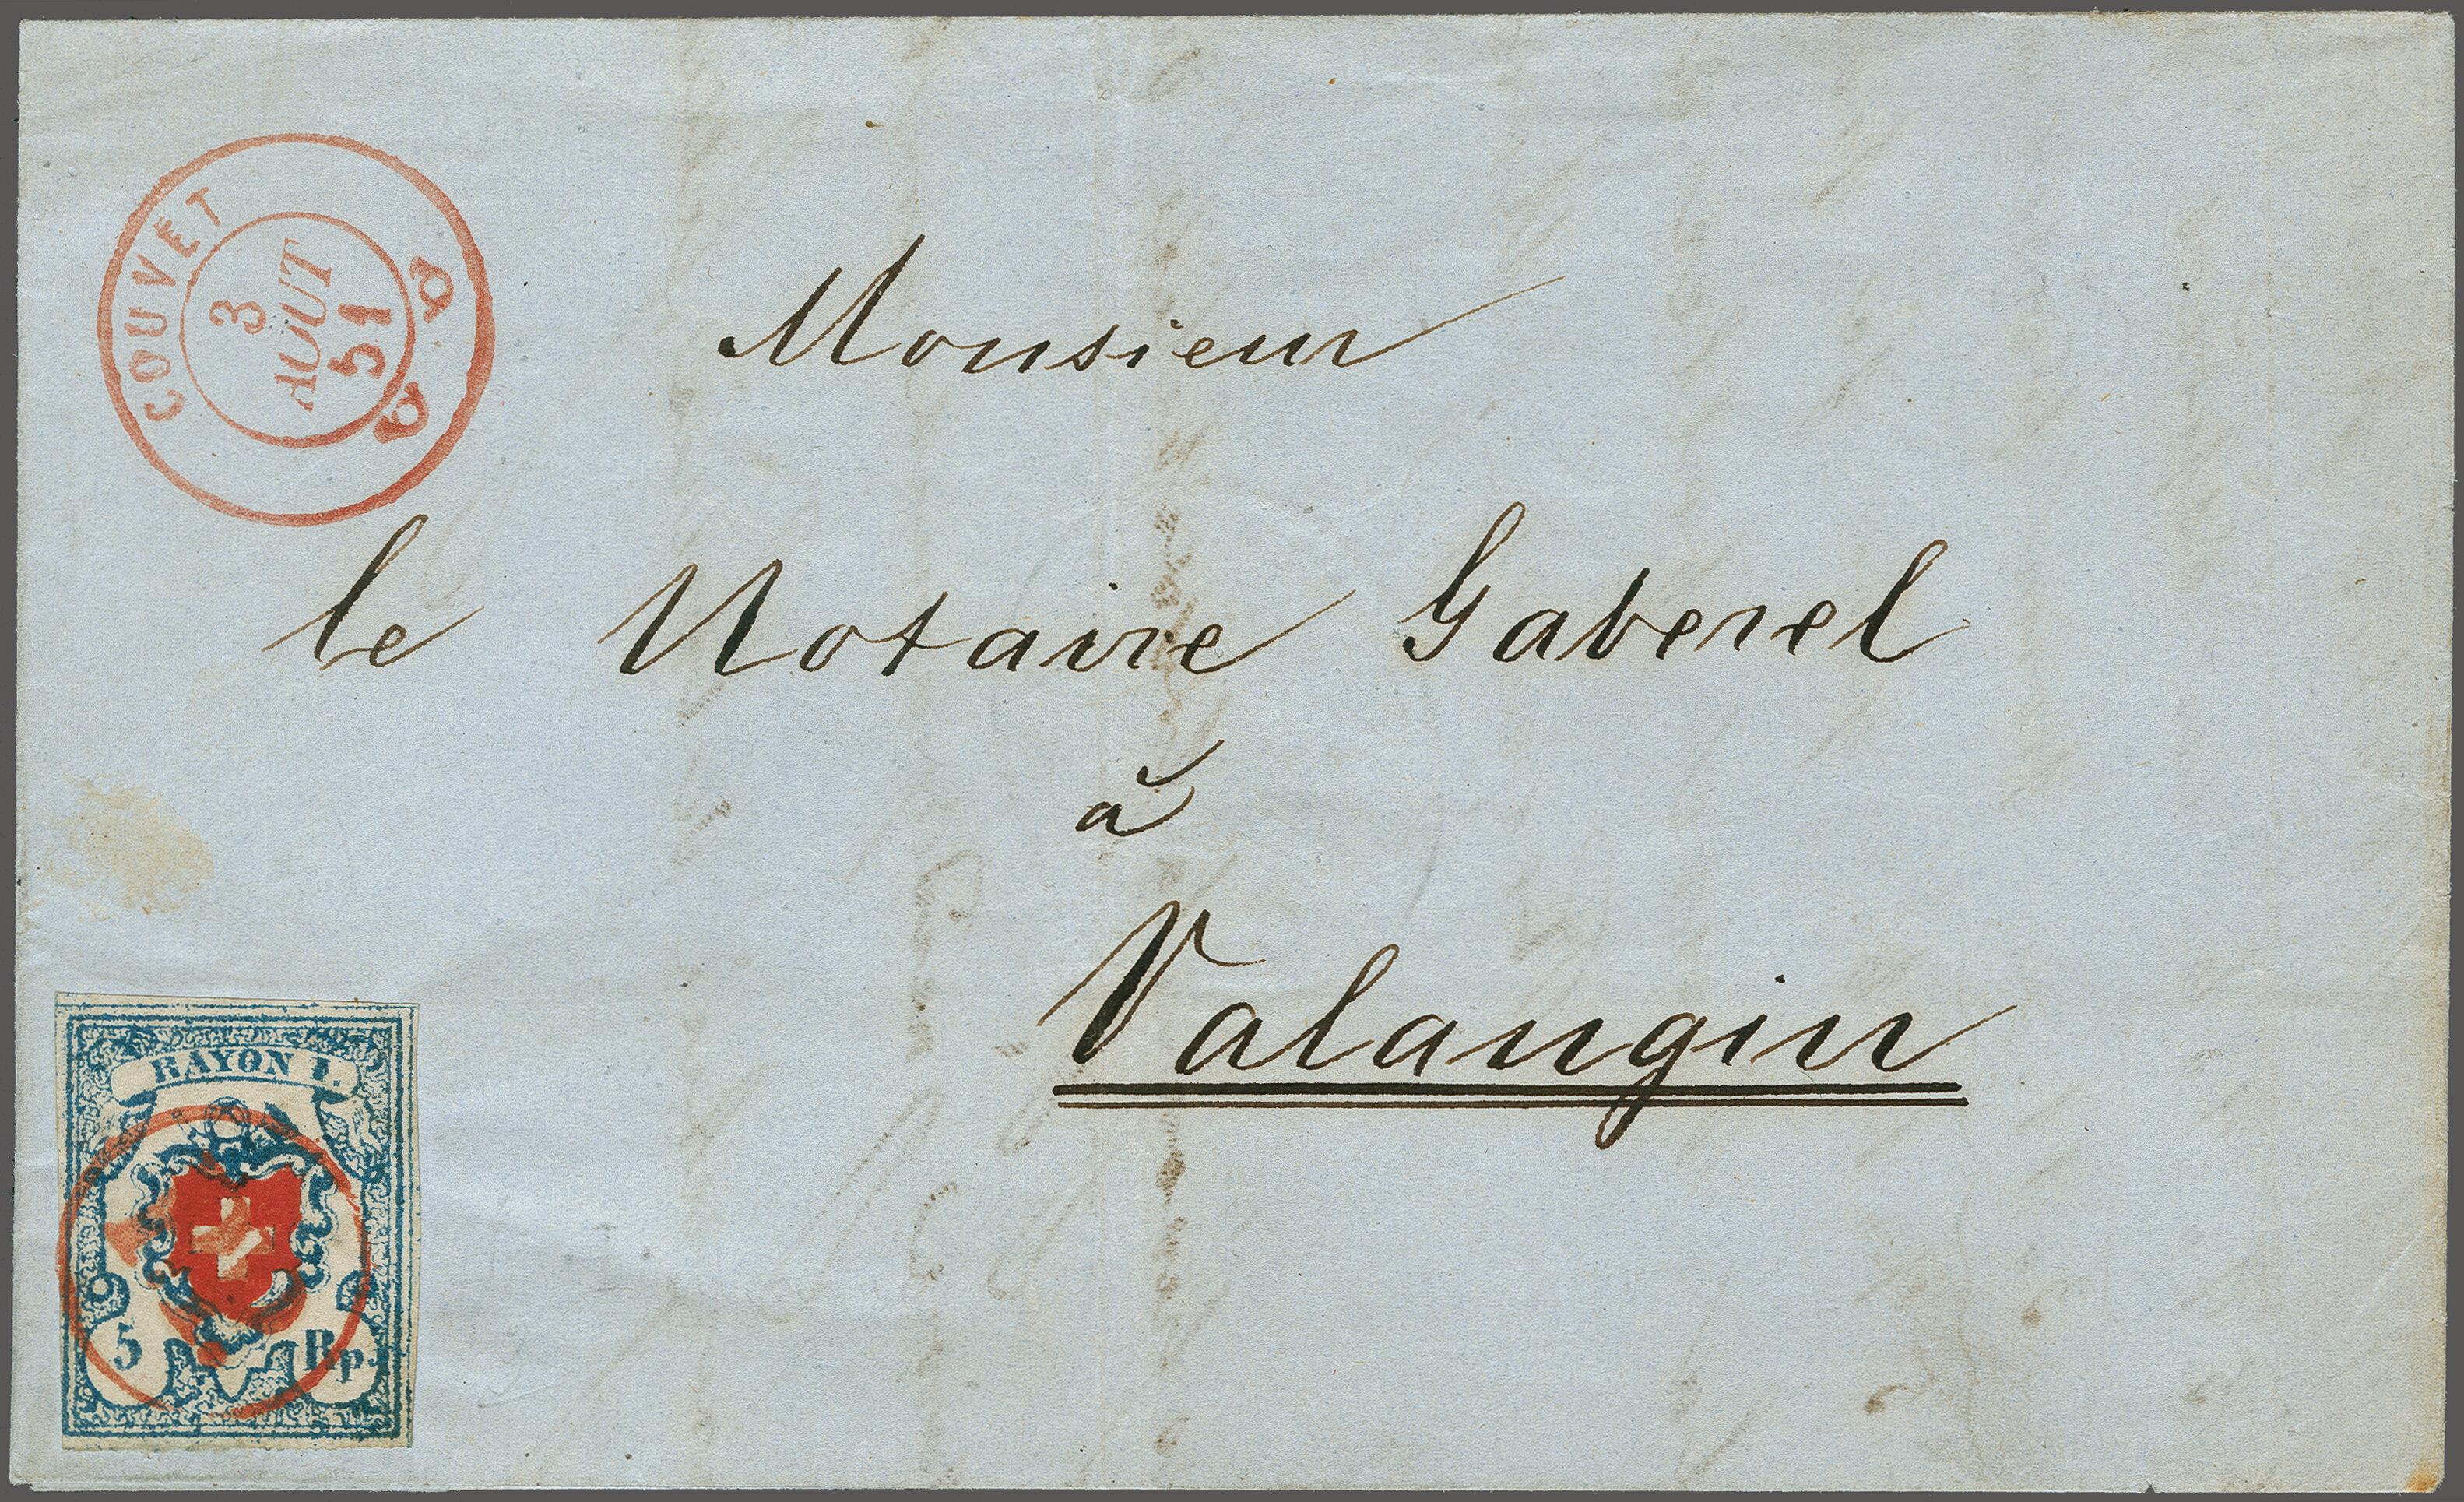 COUVET
3
AOUT
51
Monsieur
le Notaire Gaberel
à
Valangin
RAYON I.
5 Rp.